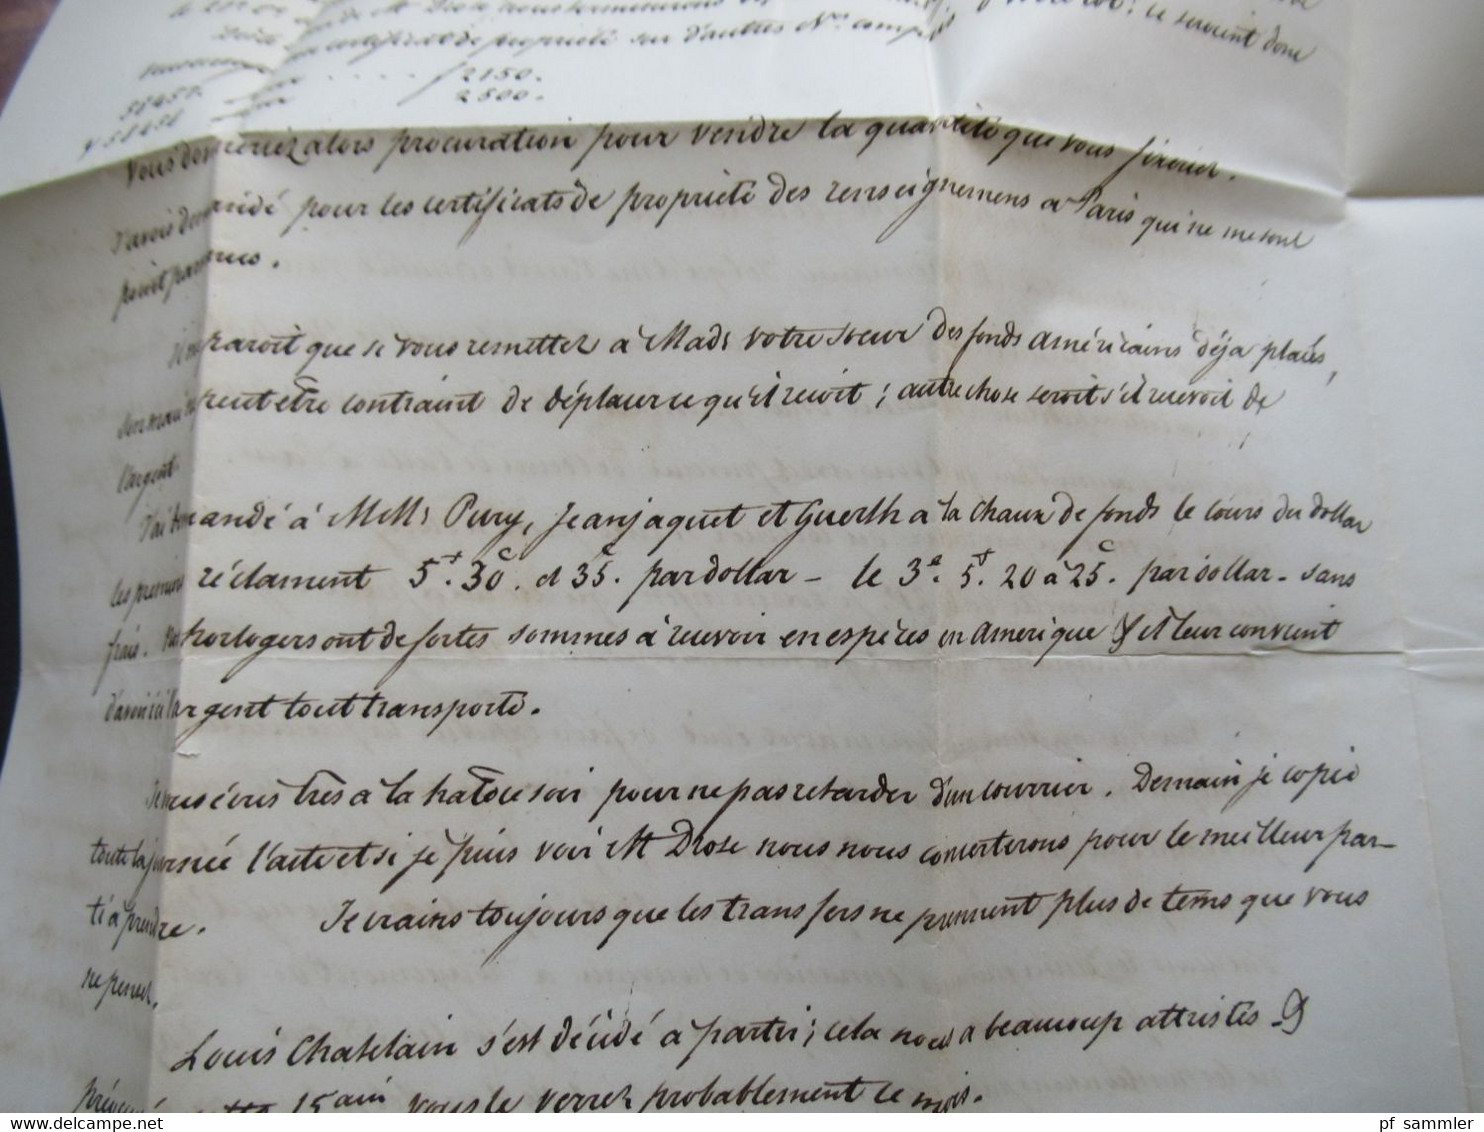 certificat de propriété sur d'autres Nos
ce seroient donc
58457. 2150.
58458 2500.
Vous donneriez alors procuration pour vendre la quantité que vous fixeriez.
J'avois demandé pour les certificats de propriété des renseignemens a Paris qui ne me sont
point parvenus.
paroit que si vous remettez à Made votre soeur des fonds américains déja placés,
peut etre contraint de déplacer ce qu'il recoit ; autre chose seroit s'il recevoit de
l'argent.
J'ai demandé à MMrs Pury, Jeanjaquet et Guerth a la Chaux de fonds le cours du dollar
les premiers réclament 5f. 30c. et 35c. par dollar - le 3e. 5f. 20 à 25c. par dollar - sans
frais. Nos horlogers ont de fortes sommes à recevoir en espèces en Amerique & il leur convient
d'avoir ici l'argent tout transporté.
Je vous écris très a la hate ce soir pour ne pas retarder d'un courrier. Demain je copie
toute la journée l'acte et si je puis voir Mr Droze nous nous concerterons pour le meilleur par-
ti à prendre. Je crains toujours que les transfers ne prennent plus de tems que vous
ne pensez.
Louis Chatelain s'est décidé a partir ; cela nous a beaucoup attristés -
15 ain vous le verrez probablement ce mois.
pf sammler